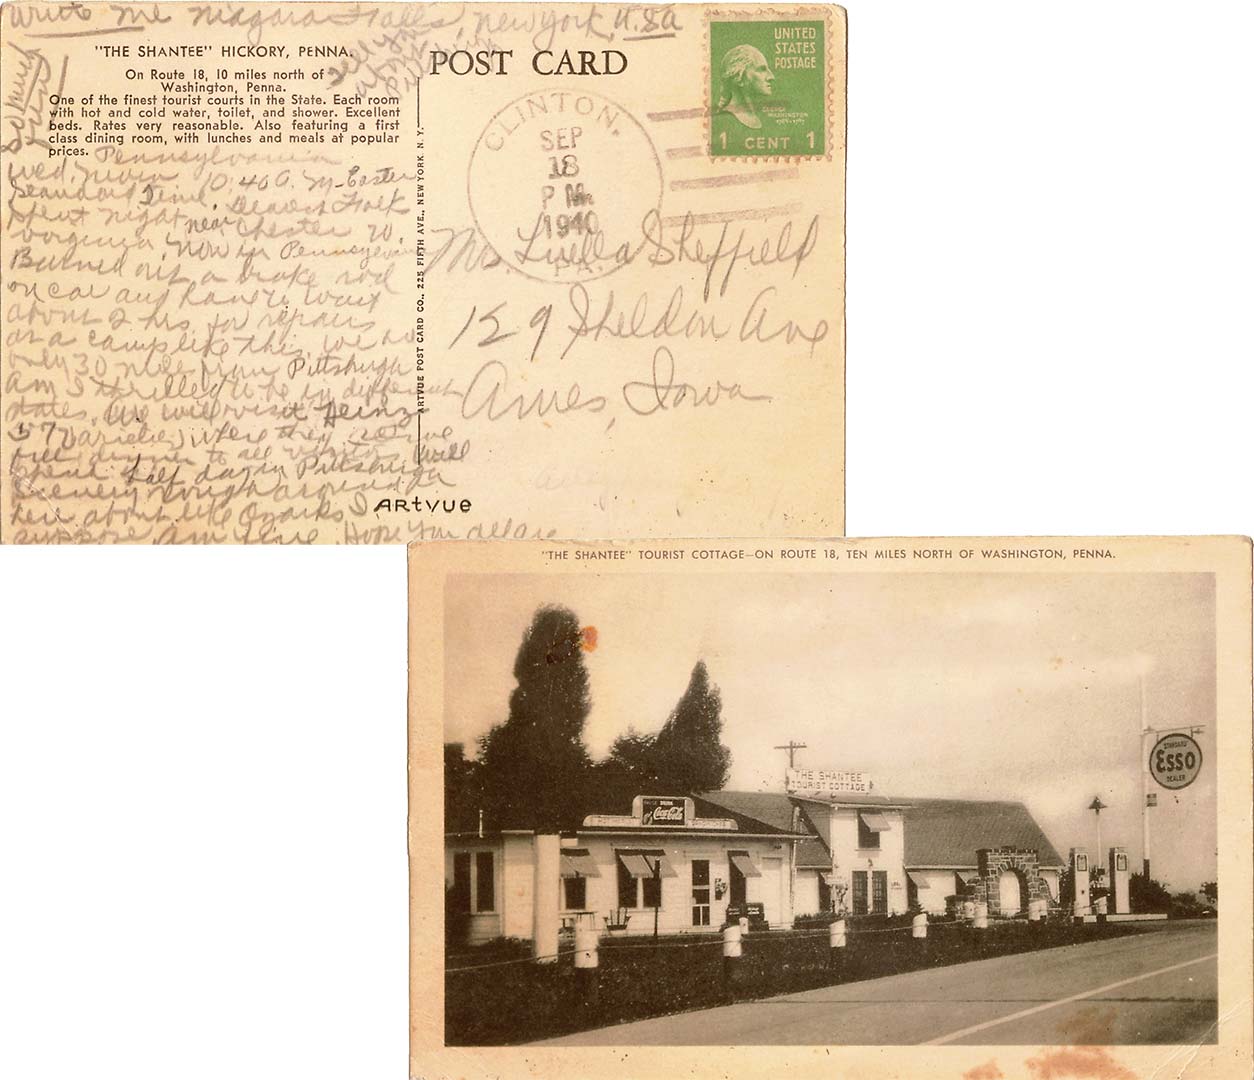 Write Me Niagara Falls, New York, U.S.A
"THE SHANTEE" HICKORY, PENNA.
On Route 18, 10 miles north of
Washington, Penna.
One of the finest tourist courts in the State. Each room
with hot and cold water, toilet, and shower. Excellent
beds. Rates very reasonable. Also featuring a first
class dining room, with lunches and meals at popular
prices.
Pennsylvania
Wed. 10:40 A. M- Easter
Standard Time. Dearest Folk
Spent night near Chester W.
Virginia. Now in Pennsylvania
Burned out a brake rod
on car and have to wait
about 2 hrs. for repairs
at a camp like this. We are
only 30 miles from Pittsburgh
Am I thrilled to be in different
states. We will visit Heinz
57 Varieties where they serve
dinner to all visitors. Will
spend half day in Pittsburgh
Scenery rough around
here about like Ozarks I
suppose. Am fine. Hope you all are
So much
Tell you
ARTVUE POST CARD CO., 225 FIFTH AVE., NEW YORK, N. Y.
ARTVUE
POST CARD
CLINTON,
SEP
18
P M.
1940
PA.
UNITED
STATES
POSTAGE
GEORGE
WASHINGTON
1789-1797
1 CENT 1
Mrs. Luella Sheffield
129 Sheldon Ave
Ames, Iowa
"THE SHANTEE" TOURIST COTTAGE—ON ROUTE 18, TEN MILES NORTH OF WASHINGTON, PENNA.
THE SHANTEE
TOURIST COTTAGE
DRINK
Coca-Cola
STANDARD
ESSO
DEALER